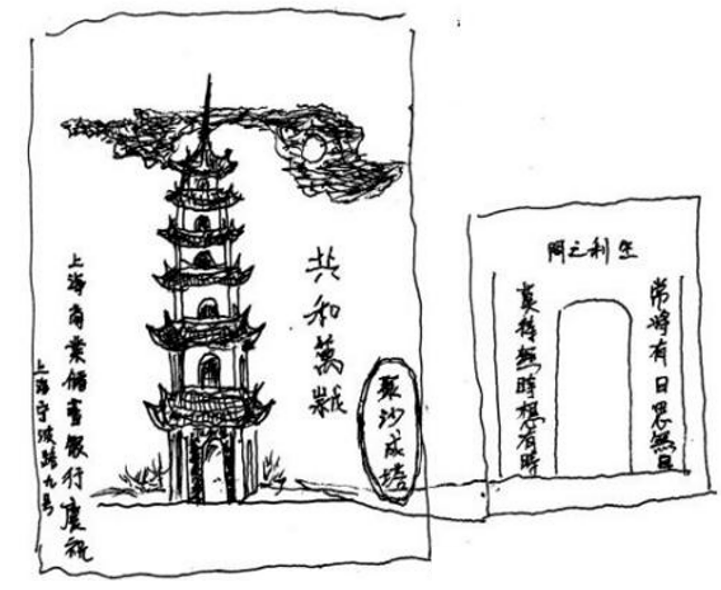 共和萬歲
聚沙成塔
上海商業儲蓄銀行慶祝
上海宁波路九号
生利之門
常將有日思無日
莫待無時想有時